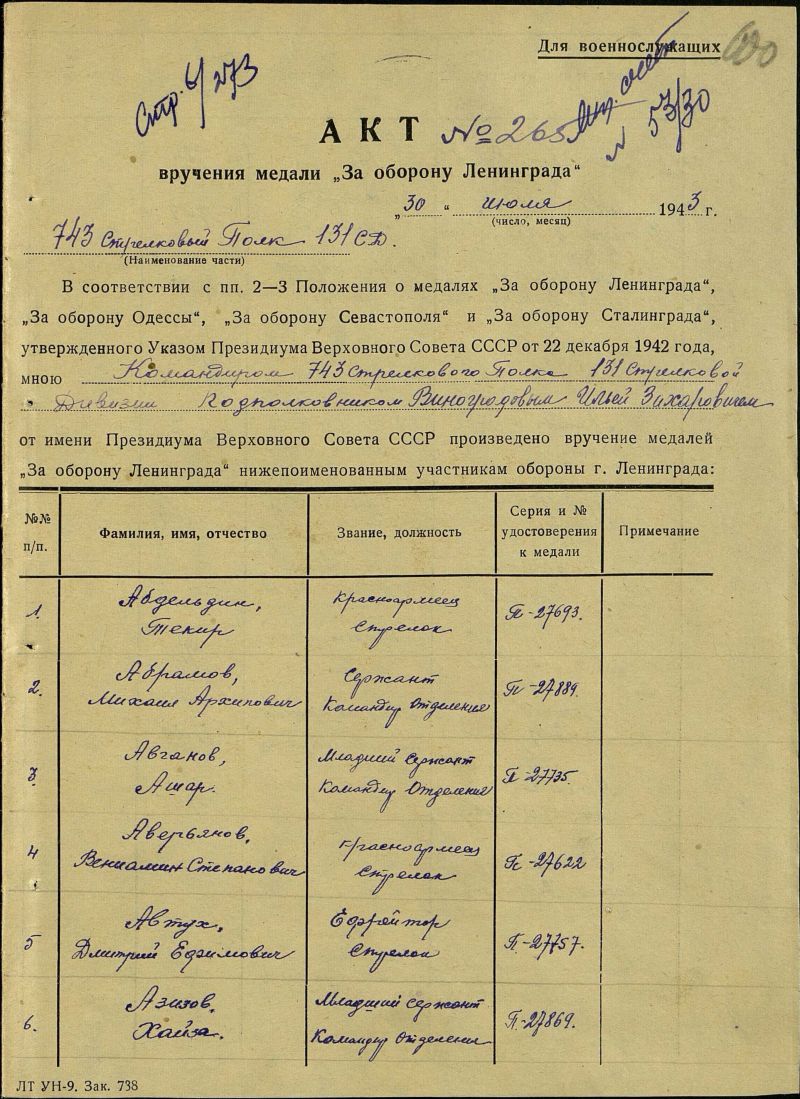 Для военнослужащих
Стр. 6/273
53/30
АКТ № 265
вручения медали „За оборону Ленинграда“
„30“ июля 1943 г.
(число, месяц)
743 Стрелковый Полк 131 СД.
(Наименование части)
В соответствии с пп. 2—3 Положения о медалях „За оборону Ленинграда“,
„За оборону Одессы“, „За оборону Севастополя“ и „За оборону Сталинграда“,
утвержденного Указом Президиума Верховного Совета СССР от 22 декабря 1942 года,
мною Командиром 743 Стрелкового Полка 131 Стрелковой
Дивизии Подполковником Виноградовым Ильей Захаровичем
от имени Президиума Верховного Совета СССР произведено вручение медалей
„За оборону Ленинграда“ нижепоименованным участникам обороны г. Ленинграда:
№№ п/п. Фамилия, имя, отчество Звание, должность Серия и № удостоверения к медали Примечание
1. Абдельдин, Текир Красноармеец Стрелок П-27693.
2. Абрамов, Михаил Архипович Сержант Командир Отделения П-27889.
3. Авганов, Ашар. Младший Сержант Командир Отделения П-27735.
4 Аверьянов, Вениамин Степанович Красноармеец Стрелок П-27622
5 Автух, Дмитрий Ефимович Ефрейтор Стрелок П-27757.
6. Азизов, Хайза. Младший Сержант Командир Отделения П-27869.
ЛТ УН-9. Зак. 738